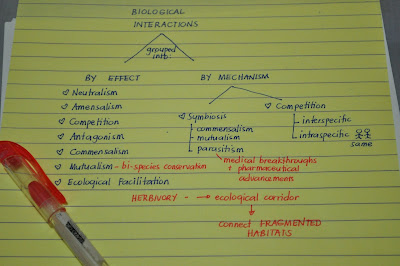 BIOLOGICAL
INTERACTIONS
grouped
into:
BY EFFECT
Neutralism
Amensalism
Competition
Antagonism
Commensalism
Mutualism - bi-species conservation
Ecological Facilitation
BY MECHANISM
Symbiosis
commensalism
mutualism
parasitism
medical breakthroughs
+ pharmaceutical
advancements
Competition
interspecific
intraspecific
same
HERBIVORY → ecological corridor
connect FRAGMENTED
HABITATS